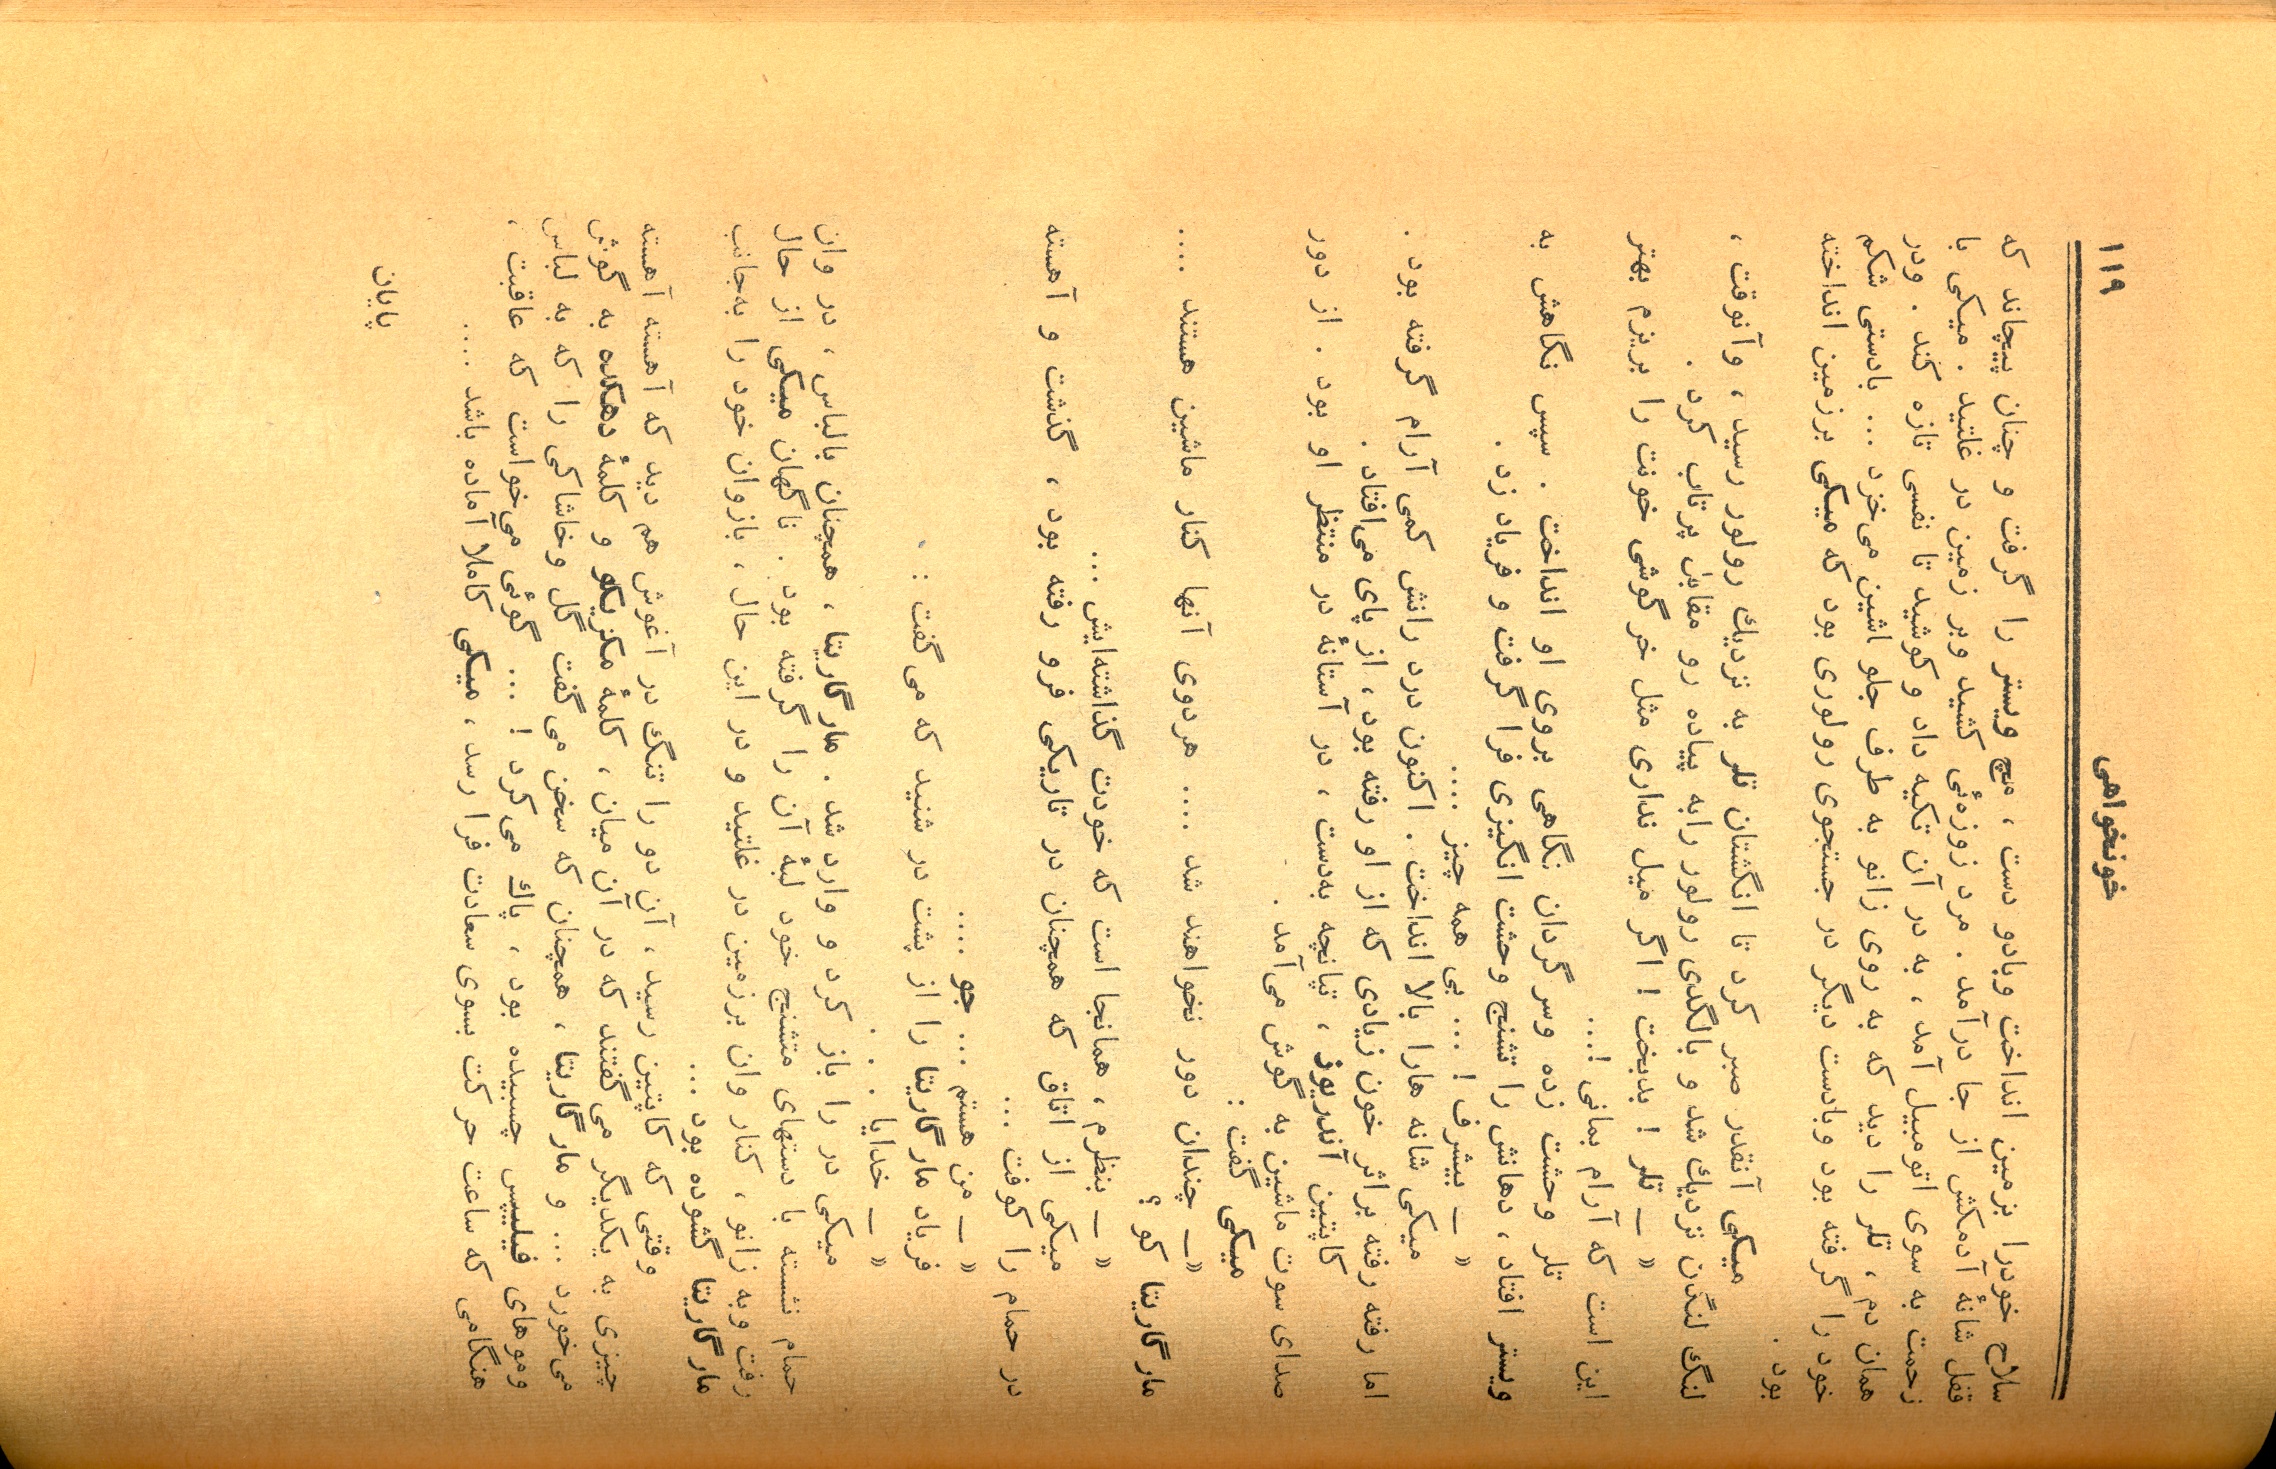 ۱۱۹
خونخواهی
سلاح خودرا بزمین انداخت وبادو دست ، مچ ویستر را گرفت و چنان پیچاند که
قفل شانهٔ آدمکش از جا درآمد . مرد زوزه‌ئی کشید وبر زمین در غلتید . میکی با
زحمت به سوی اتومبیل آمد ، به در آن تکیه داد و کوشید تا نفسی تازه کند . ودر
همان دم ، تلر را دید که به روی زانو به طرف جلو اشین می‌خزد ... بادستی شکم
خود را گرفته بود وبادست دیگر در جستجوی رولوری بود که میکی برزمین انداخته
بود .
میکی آنقدر صبر کرد تا انگشتان تلر به نزدیك رولور رسید ، وآنوقت ،
لنگ لنگان نزدیك شد و بالگدی رولور رابه پیاده رو مقابل پرتاب کرد .
« ـ تلر ! بدبخت ! اگر میل نداری مثل خر گوشی خونت را بریزم بهتر
این است که آرام بمانی !...
تلر وحشت زده وسر گردان نگاهی بروی او انداخت . سپس نگاهش به
ویستر افتاد ، دهانش را تشنج وحشت انگیزی فرا گرفت و فریاد زد .
« ـ بیشرف ! ... بی همه چیز ....
میکی شانه هارا بالا انداخت . اکنون درد رانش کمی آرام گرفته بود .
اما رفته رفته براثر خون زیادی که از او رفته بود ، از پای می‌افتاد .
کاپتین آندریوز ، تپانچه به‌دست ، در آستانهٔ در منتظر او بود . از دور
صدای سوت ماشین به گوش می‌آمد .
میکی گفت :
«ـ چندان دور نخواهند شد .... هردوی آنها کنار ماشین هستند ....
مار گاریتا کو ؟
« ـ بنظرم ، همانجا است که خودت گذاشته‌ایش ...
میکی از اتاق که همچنان در تاریکی فرو رفته بود ، گذشت و آهسته
در حمام را کوفت ...
« ـ من هستم ... جو ....
فریاد مار گاریتا را از پشت در شنید که می گفت :
« ـ خدایا . . .
میکی در را باز کرد و وارد شد . مار گاریتا ، همچنان بالباس ، در وان
حمام نشسته با دستهای متشنج خود لبهٔ آن را گرفته بود . ناگهان میکی از حال
رفت وبه زانو ، کنار وان برزمین در غلتید و در این حال ، بازوان خود را به‌جانب
مار گاریتا گشوده بود ...
وقتی که کاپتین رسید ، آن دو را تنگ در آغوش هم دید که آهسته آهسته
چیزی به یکدیگر می گفتند که در آن میان ، کلمهٔ مکزیکو و کلمهٔ دهکده به گوش
می‌خورد ... و مار گاریتا ، همچنان که سخن می گفت گل وخاشاکی را که به لباس
وموهای فیلیپس چسبیده بود ، پاك می‌کرد ! ... گوئی می‌خواست که عاقبت ،
هنگامی که ساعت حر کت بسوی سعادت فرا رسد ، میکی کاملاً آماده باشد ....
پایان